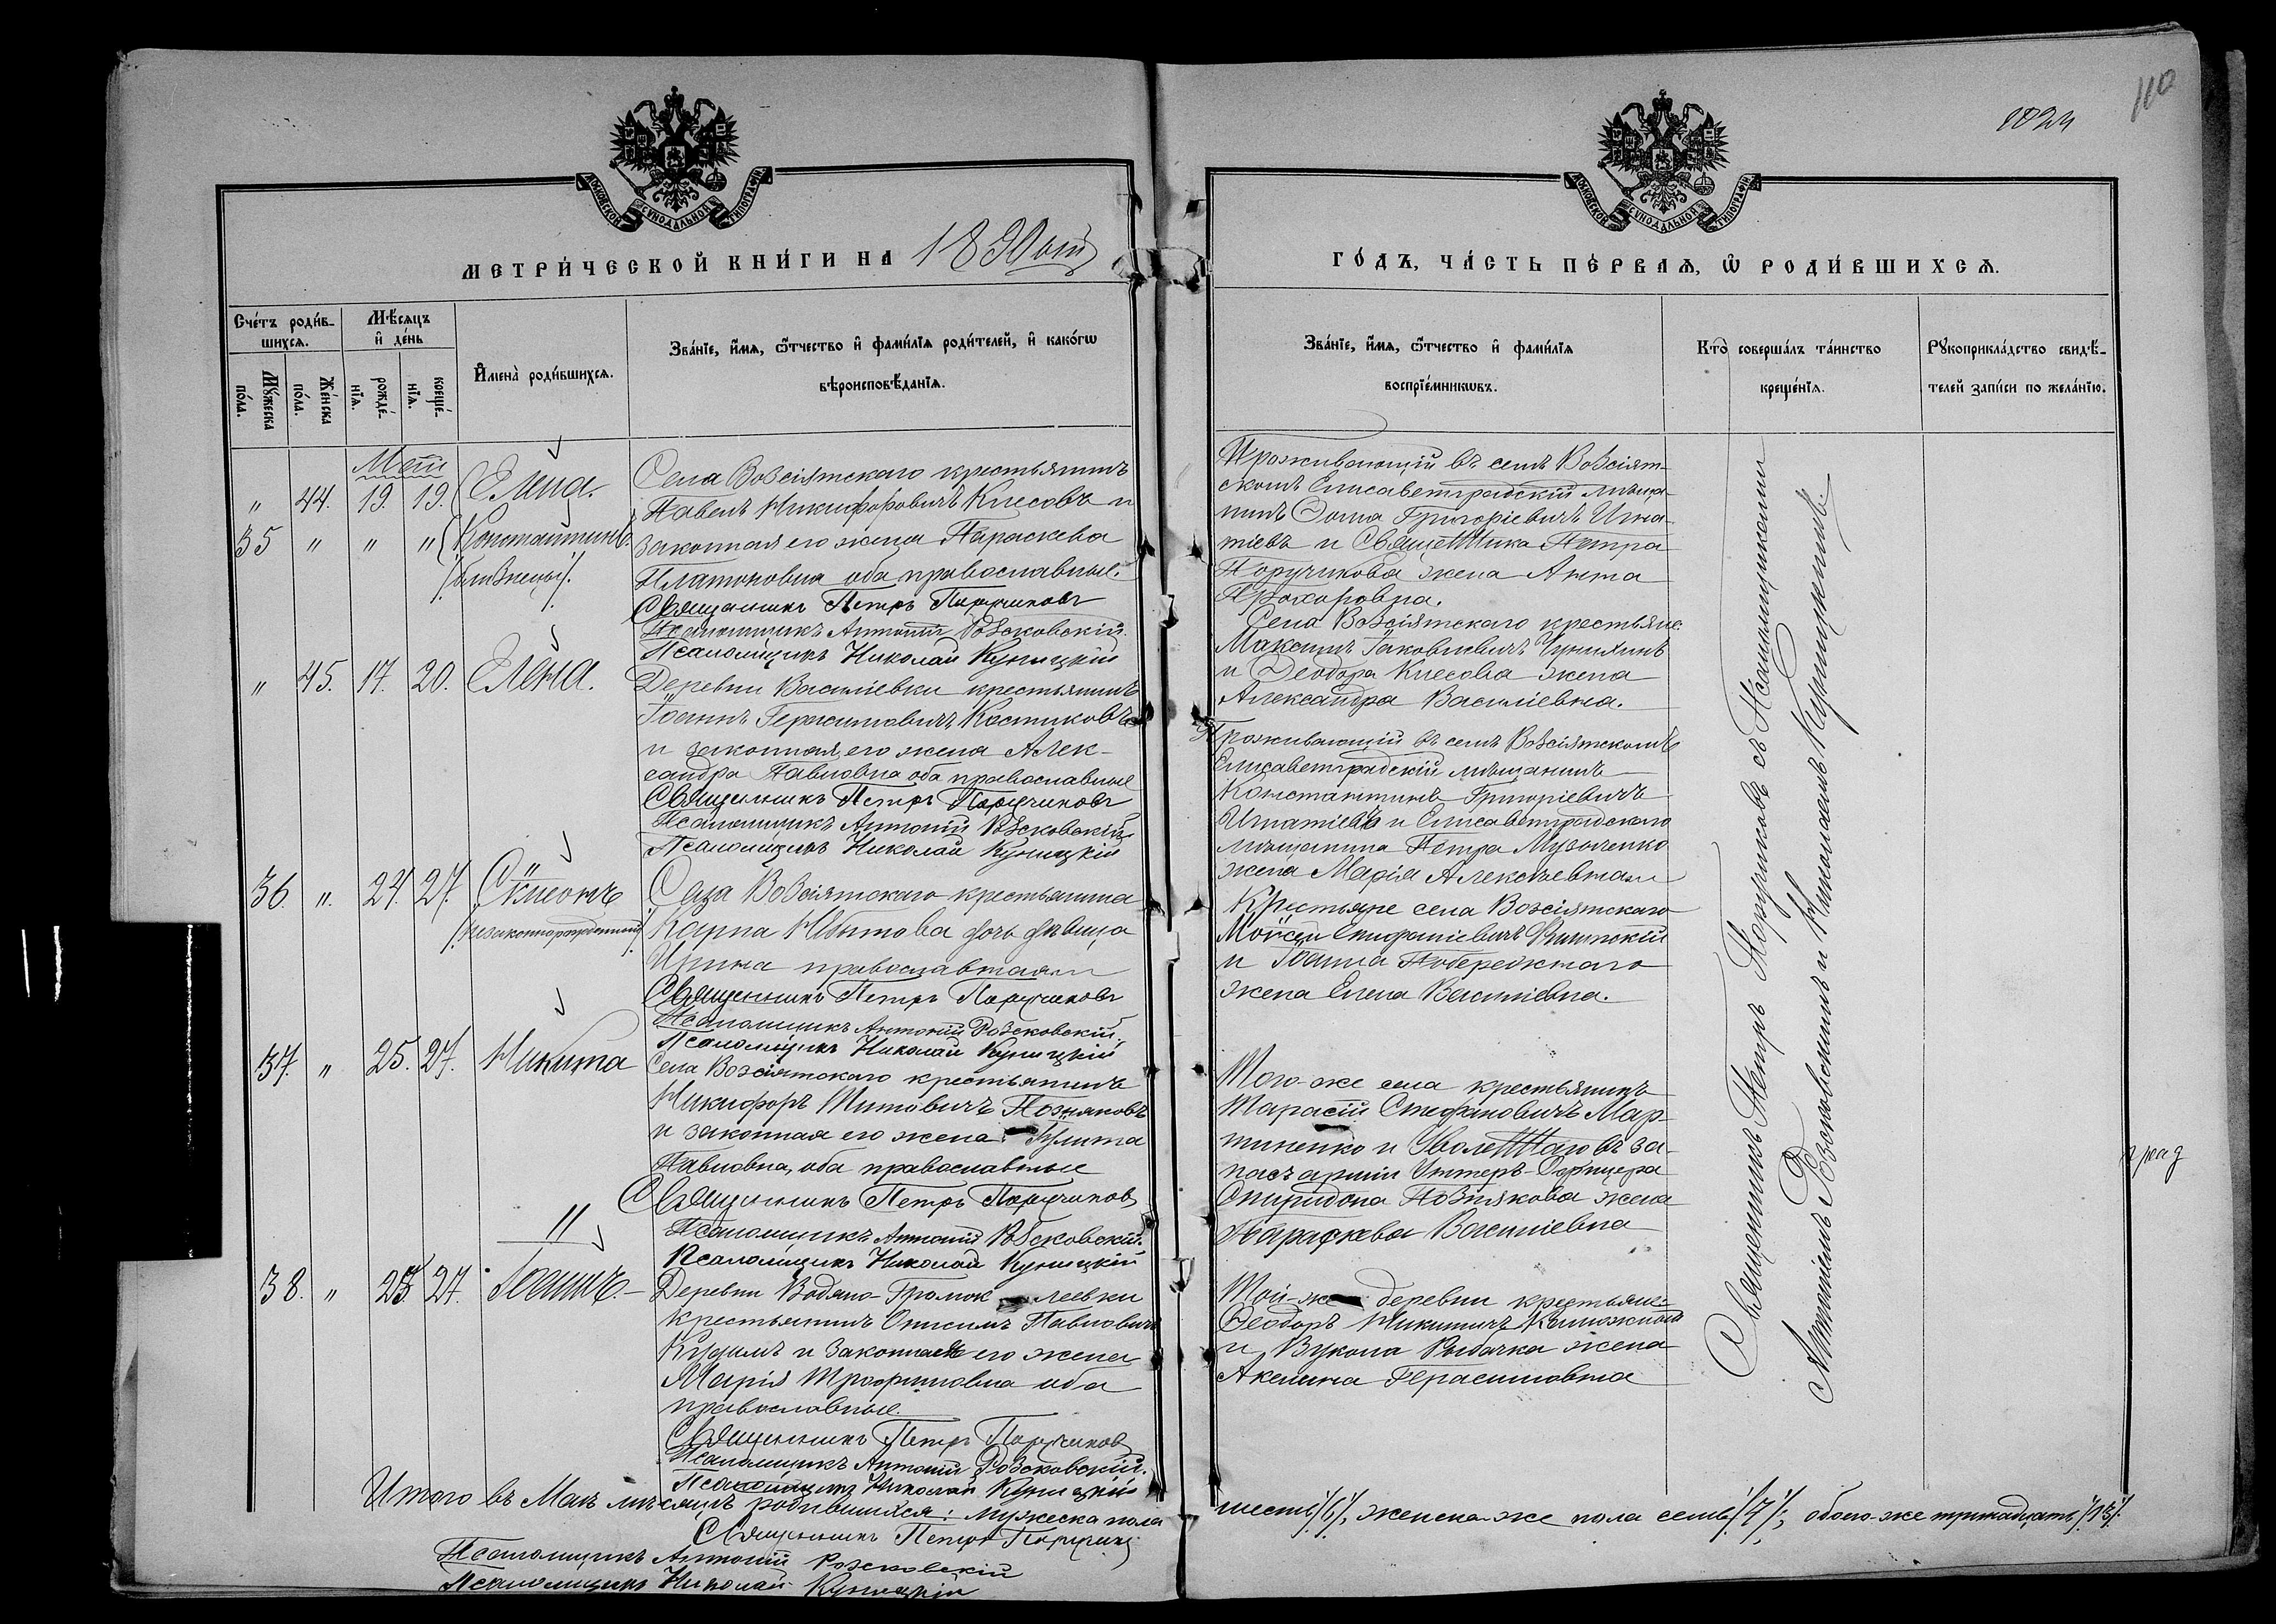 110
1024
МОСКОВСКОЙ СѴНОДАЛЬНОЙ ТИПОГРАФІИ
МОСКОВСКОЙ СѴНОДАЛЬНОЙ ТИПОГРАФІИ
МЕТРИ́ЧЕСКОЙ КНИ́ГИ НА 1890 ый
ГО́ДЪ, ЧА́СТЬ ПЕ́РВАѦ, Ѡ РОДИ́ВШИХСѦ.
Сче́тъ роди́в-
шихсѧ.
Мꙋ́жеска по́ла.
Же́нска по́ла.
Мѣ́сѧцъ
и де́нь
рожде́-
нїѧ.
креще́-
нїѧ.
И҆мена̀ роди́вшихсѧ.
Зва́нїе, и҆́мѧ, ѻ҆́тчество и҆ фами́лїѧ роди́телей, и҆ како́гѡ
вѣроисповѣ́данїѧ.
Зва́нїе, и҆́мѧ, ѻ҆́тчество и҆ фами́лїѧ
воспрїе́мникѡвъ.
Кто̀ соверша́лъ та́инство
креще́нїѧ.
Рꙋкоприкла́дство свидѣ́-
телей за́писи по жела́нїю.
Май
" 44. 19. 19. Елена.
35 " " " Константинъ.
/близнецы/.
Села Возсіятскаго крестьянинъ
Павелъ Никифоровичъ Киссовъ и
законная его жена Параскева
Платоновна оба православные.
Священникъ Петръ Поручиковъ
Псаломщикъ Антоній Розсковскій.
Псаломщикъ Николай Куницкій
Проживающій въ селѣ Возсіят-
скомъ Елисаветградскій мѣща-
нинъ Ѳома Григоріевичъ Игна-
тіевъ и Священника Петра
Поручикова жена Анна
Прохоровна.
Села Возсіятскаго крестьяне
Максимъ Іаковлевичъ
и Ѳеодора Киссова жена
Александра Василіевна.
" 45. 17. 20. Елена.
Деревни Василіевки крестьянинъ
Іоаннъ Герасимовичъ Костиковъ
и законная его жена Алек-
сандра Павловна оба православные
Священникъ Петръ Поручиковъ
Псаломщикъ Антоній Розсковскій
Псаломщикъ Николай Куницкій
Проживающій въ селѣ Возсіятскомъ
Елисаветградскій мѣщанинъ
Константинъ Григоріевичъ
Игнатіевъ и Елисаветградскаго
мѣщанина Петра Музыченко
жена Марія Алексѣевна
36. " 24. 27. Сѵмеонъ
/незаконнорожденный/
Села Возсіятскаго крестьянина
Карпа Изотова дочь дѣвица
Ирина православная
Священникъ Петръ Поручиковъ
Псаломщикъ Антоній Розсковскій,
Псаломщикъ Николай Куницкій
Крестьяне села Возсіятскаго
Моѵсей Епифаніевичъ
и Іоанна Побережнаго
жена Елена Василіевна.
37. " 25. 27. Никита
Села Возсіятскаго крестьянинъ
Никифоръ Титовичъ Позняковъ
и законная его жена Іулита
Павловна, оба православные
Священникъ Петръ Поручиковъ
Псаломщикъ Антоній Розсковскій.
Псаломщикъ Николай Куницкій
Того-же села крестьянинъ
Тарасій Стефановичъ Мар-
тиненко и Уволеннаго въ за-
пасъ арміи Унтеръ-Офицера
Спиридона Познякова жена
Параскева Василіевна
38. " 25 27. Іоаннъ
Деревни Водяно-Громок леевки
крестьянинъ Онисимъ Павловичъ
и законная его жена
Марія Трофимовна оба
православные.
Священникъ Петръ Поручиковъ
Псаломщикъ Антоній Розсковскій.
Псаломщикъ Николай Куницкій
Той-же деревни крестьяне
Ѳеодоръ Никитичъ
и Вукола Рыбачка жена
Акилина Герасимовна
Священникъ Петръ Поручиковъ съ Псаломщиками
Антоніемъ Розсковскимъ и Николаемъ Куницкимъ.
Итого въ Маѣ мѣсяцѣ родившихся: мужеска пола
шесть /6/, женска-же пола семь /7/, обоего-же тринадцать /13/.
Священникъ Петръ Поручик
Псаломщикъ Антоній Розсковскій
Псаломщикъ Николай Куницкій